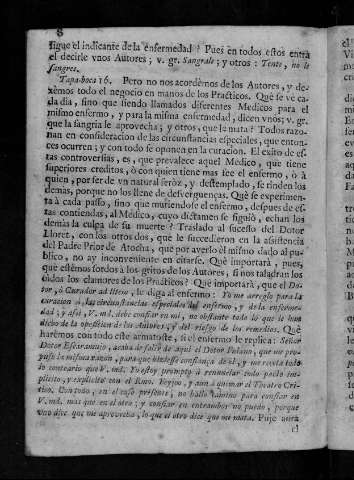 8
sigue el indicante de la enfermedad? Pues en todos estos entra
el decirle vnos Autores; v. gr. Sangrale; y otros: Tente, no le
sangres.
Tapa-boca 16. Pero no nos acordèmos de los Autores, y de-
xèmos todo el negocio en manos de los Pràcticos. Què se vè ca-
da dia, sino que siendo llamados diferentes Medicos para el
mismo enfermo, y para la misma enfermedad, dicen vnos; v. gr.
que la sangria le aprovecha; y otros, que le mata? Todos razo-
nan en consideracion de las circunstancias especiales, que enton-
ces ocurren; y con todo se oponen en la curacion. El exito de es-
tas controversias, es, que prevalece aquel Medico, que tiene
superiores creditos, ò con quien tiene mas fee el enfermo, ò à
quien, por ser de vn natural feròz, y destemplado, se rinden los
demàs, porque no los llene de desverguenças. Què se experimen-
ta à cada passo, sino que muriendose el enfermo, despues de es-
tas contiendas, al Mèdico, cuyo dictamen se siguiò, echan los
demàs la culpa de su muerte? Traslado al sucesso del Dotor
Lloret, con los otros dos, que le succedieron en la asistencia
del Padre Prior de Atocha, que por averlo èl mismo dado al pu-
blico, no ay inconveniente en citarse. Què importarà, pues,
que estèmos sordos à los gritos de los Autores, si nos taladran los
oidos los clamores de los Pràcticos? Què importarà, que el Do-
tor, ò Curador del libro, le diga al enfermo: Yo me arreglo para la
curacion à las circunstancias especiales del enfermo, y de la enferme-
dad; y assi, V. md. debe confiar en mi, no obstante todo lo que se han
dicho de la oposicion de los Autores, y del riesgo de los remedios. Què
harèmos con todo este armatoste, si el enfermo le replica: Señor
Dotor Escornauejo, acaba de salir de aqui el Dotor Polano, que me pro-
puso la misma razon, para que hiziesse confiança de èl, y me receta todo
lo contrario que V. md. Yo estoy prompto à renunciar todo pacto im-
plicito, y explicito con el Rmo. Feyjoo, y aun à quemar el Theatro Cri-
tico. Con todo, en el caso presente, no hallo camino para confiar en
V. md. mas que en el otro; y confiar en entrambos no puedo, porque
vno dice que me aprovecha, lo que el otro dice que me mata.